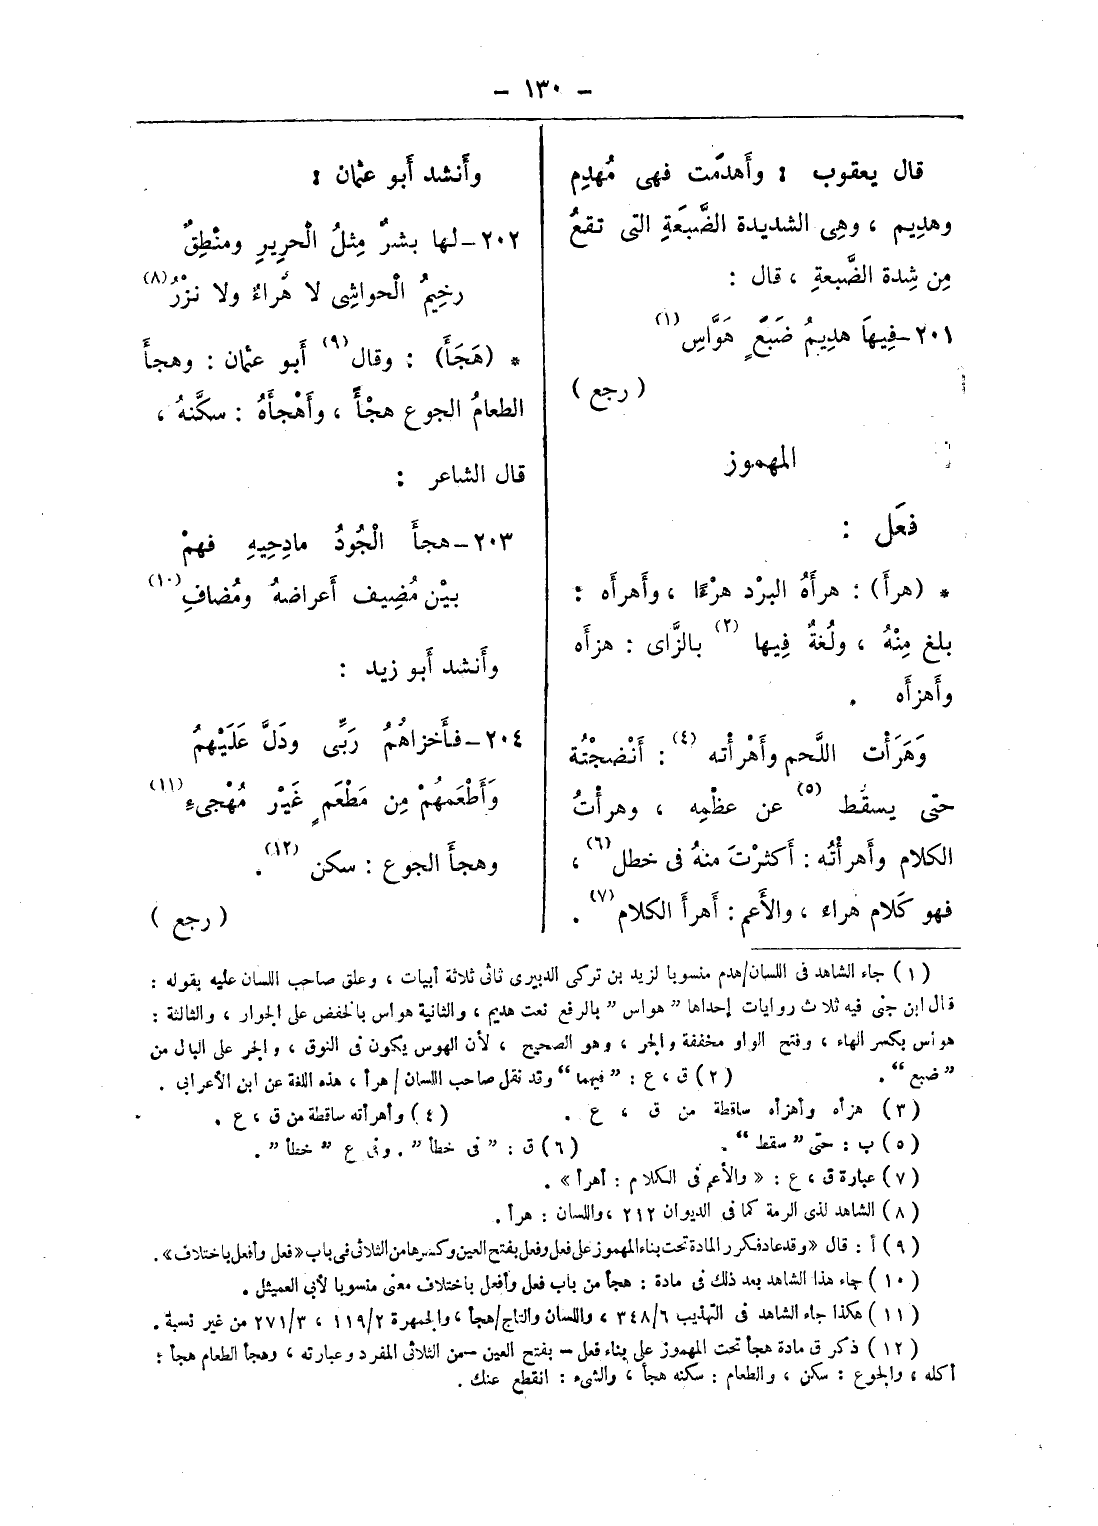 - ١٣٠ -
قال يعقوب : وأَهدمَت فهى مُهدِم
وهدِيم ، وهِى الشديدة الضَّبَعَةِ التى تقعُ
مِن شِدة الضَّبعةِ ، قال :
٢٠١-فِيهَا هدِيمُ ضَبَعٍ هَوَّاسِ (١)
( رجع )
المهموز
فعَل :
* (هرأ) : هرأَهُ البرْد هرْءًا ، وأَهرأَه :
بلغ مِنْهُ ، ولُغةٌ فِيها (٢) بالزَّاى : هزأَه
وأَهزأَه .
وَهَرَأْت اللَّحم وأَهْرأْته (٤) : أَنْضجْتُهَ
حتّى يسقُط (٥) عن عظْمِه ، وهرأْتُ
الكلام وأَهرأْتُه : أَكثرْتَ منهُ فى خطل (٦) ،
فهو كَلام هراء ، والأَعم : أَهرأَ الكلام (٧) .
وأَنشد أَبو عثمان :
٢٠٢-لها بشرٌ مِثلُ الْحرِيرِ ومنْطِقٌ
رخِيمُ الْحواشِى لا هُراءٌ ولا نزْرُ (٨)
* (هَجَأَ) : وقال (٩) أَبو عثمان : وهجأَ
الطعامُ الجوع هجْأً ، وأَهْجأَهُ : سكَّنهُ ،
قال الشاعر :
٢٠٣-هجأَ الْجُودُ مادِحِيهِ فهمْ
بيْن مُضِيف أَعراضهُ ومُضافِ (١٠)
وأَنشد أَبو زيد :
٢٠٤-فأَخزاهُمُ رَبِّى ودَلَّ عَلَيْهِمُ
وَأَطْعَمهُمْ مِن مَطْعَمٍ غَيْر مُهْجِىءِ (١١)
وهجأَ الجوع : سكن (١٢) .
( رجع )
(١) جاء الشاهد فى اللسان/هدم منسوبا لزيد بن تركى الدبيرى ثانى ثلاثة أبيات ، وعلق صاحب اللسان عليه بقوله :
قال ابن جنى فيه ثلاث روايات إحداها "هواس" بالرفع نعت هديم ، والثانية هواس بالخفض على الجوار ، والثالثة :
هواس بكسر الهاء ، وفتح الواو مخففة والجر ، وهو الصحيح ، لأن الهوس يكون فى النوق ، والجر على البال من
"ضبع" . (٢) ق ، ع : "فيهما" وقد نقل صاحب اللسان/هرأ ، هذه اللغة عن ابن الأعرابي .
(٣) هزأه وأهزأه ساقطة من ق ، ع . (٤) وأهرأته ساقطة من ق ، ع .
(٥) ب : حتى "سقط" . (٦) ق : "فى خطأ" . وفى ع "خطأ" .
(٧) عبارة ق ، ع : «والأعم فى الكلام : أهرأ» .
(٨) الشاهد لذى الرمة كما فى الديوان ٢١٢ ، واللسان : هرأ .
(٩) أ : قال «وقد عاد فكرر المادة تحت بناء المهموز على فعل وفعل بفتح العين وكسرها من الثلاثى فى باب «فعل وأفعل باختلاف» .
(١٠) جاء هذا الشاهد بعد ذلك فى مادة : هجأ من باب فعل وأفعل باختلاف معنى منسوبا لأبى العميثل .
(١١) هكذا جاء الشاهد فى التهذيب ٣٤٨/٦ ، واللسان والتاج/هجأ ، والجمهرة ١١٩/٢ ، ٢٧١/٣ من غير نسبة .
(١٢) ذكر ق مادة هجأ تحت المهموز على بناء فعل - بفتح العين - من الثلاثى المفرد وعبارته ، وهجأ الطعام هجأ :
أكله ، والجوع : سكن ، والطعام : سكنه هجأ ، والشىء : انقطع عنك .